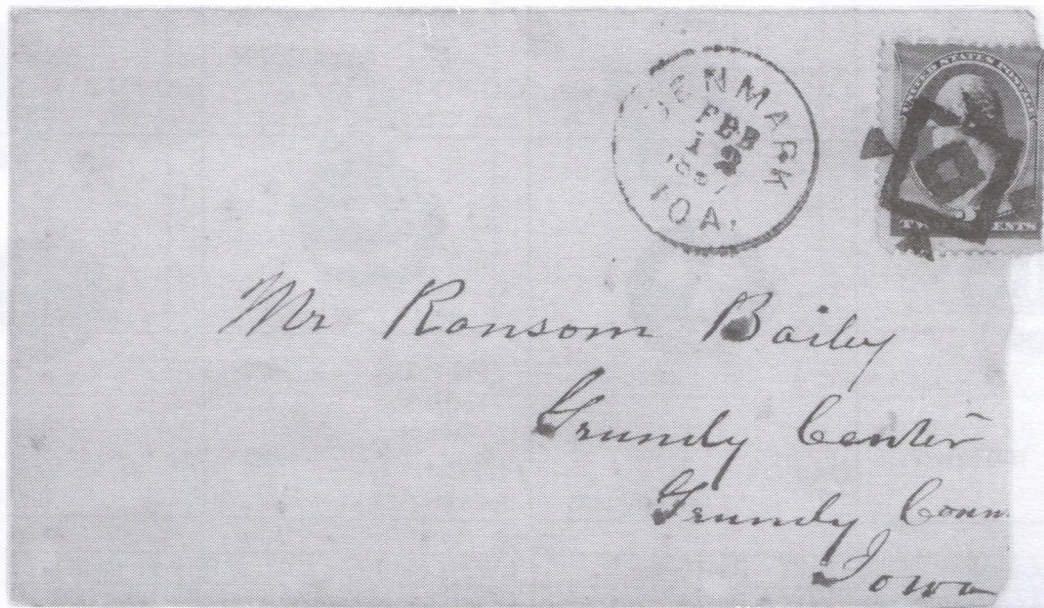 DENMARK
FEB
12
IOA.
UNITED STATES POSTAGE
CENTS
Mr Ransom Bailey
Grundy Center
Grundy Coun
Iowa